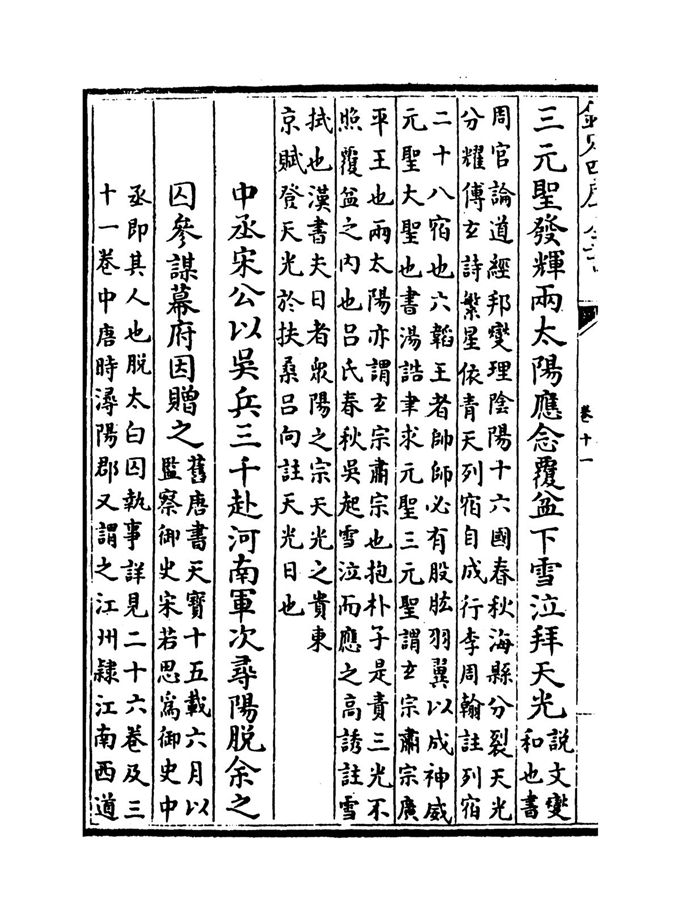 欽定四庫全書
卷十一
三元聖發輝兩太陽應念覆盆下雪泣拜天光
說文燮
和也書
周官論道經邦燮理陰陽十六國春秋海縣分裂天光
分耀傅玄詩繁星依青天列宿自成行李周翰註列宿
二十八宿也六韜王者帥師必有股肱羽翼以成神威
元聖大聖也書湯誥聿求元聖三元聖謂玄宗肅宗廣
平王也兩太陽亦謂玄宗肅宗也抱朴子是責三光不
照覆盆之内也吕氏春秋吳起雪泣而應之高誘註雪
拭也漢書夫日者衆陽之宗天光之貴東
京賦登天光於扶桑吕向註天光日也
中丞宋公以吳兵三千赴河南軍次尋陽脱余之
囚參謀幕府因贈之
舊唐書天寶十五載六月以
監察御史宋若思為御史中
丞即其人也脱太白囚執事詳見二十六卷及三
十一卷中唐時潯陽郡又謂之江州隸江南西道